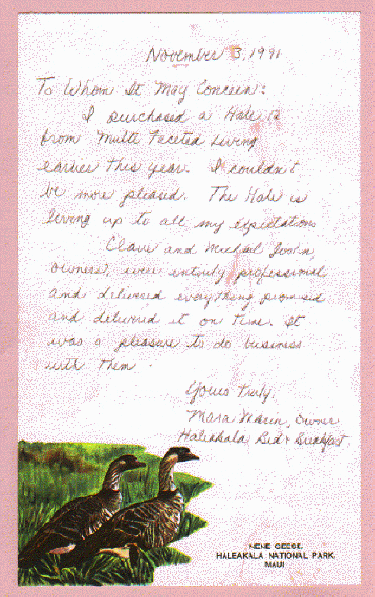 November 3, 1991
To Whom It May Concern:
I purchased a Hale 12
from Multi Faceted Living
earlier this year. I couldn't
be more pleased. The Hale is
living up to all my expectations
Claire and Michael
owners, were entirely professional
and delivered everything promised
and delivered it on time. It
was a pleasure to do business
with them.
Yours truly,
Mara owner
Haleakala Bed & Breakfast
NENE GEESE,
HALEAKALA NATIONAL PARK,
MAUI